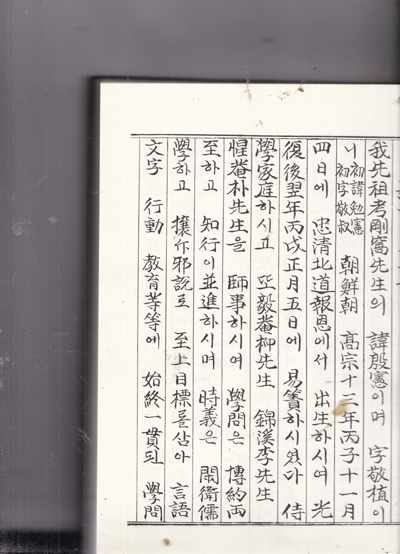 我先祖考剛窩先生의 諱殷憲이며 字敬植이
니 初諱勉憲 初字敬叔 朝鮮朝 高宗十三年丙子十一月
四日에 忠清北道報恩에서 出生하시여 光
復後翌年丙戌正月五日에 易簀하시였다 侍
學家庭하시고 又毅菴柳先生 錦溪李先生
惺菴朴先生을 師事하시여 學問은 博約兩
至하고 知行이並進하시며 時義은 閑衛儒
學하고 攘斥邪說로 至上目標를삼아 言語
文字 行動 教育等等에 始終一貫된 學問